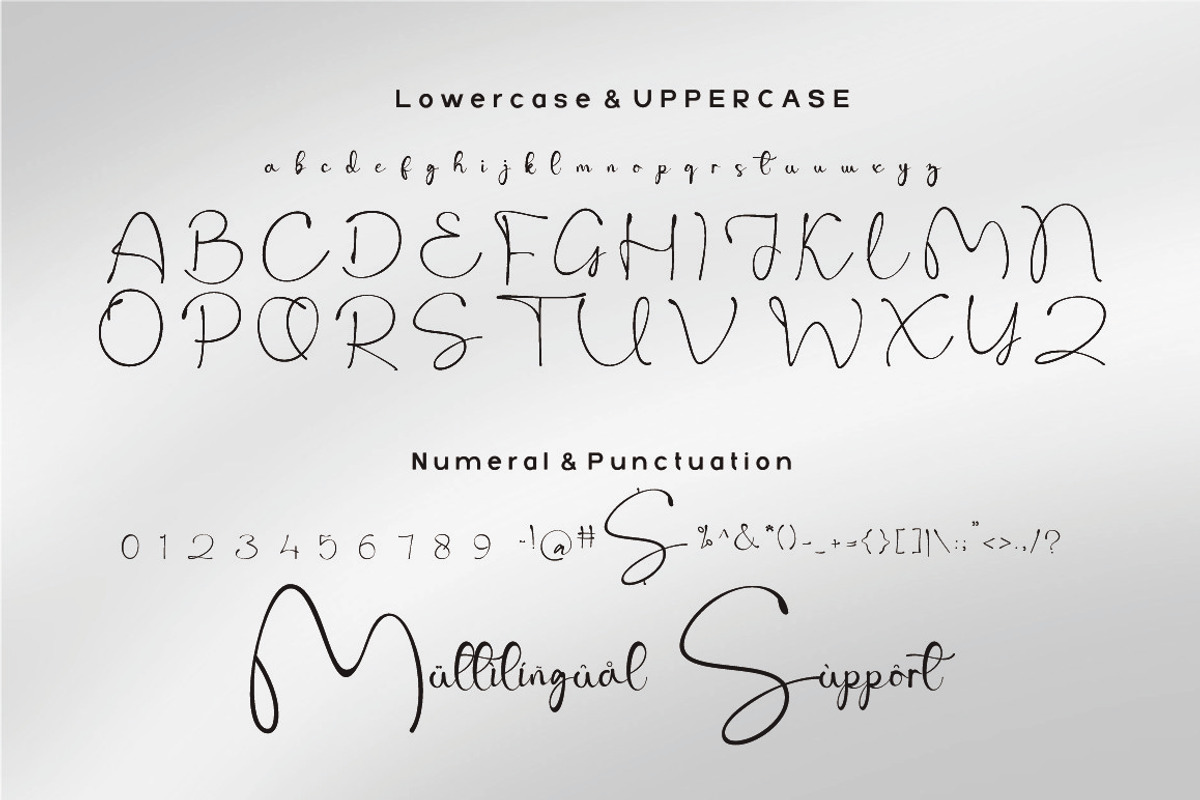 Lowercase & UPPERCASE
a b c d e f g h i j k l m n o p q r s t u u w x y z
A B C D E F G H I J K L M N
O P Q R S T U V W X Y Z
Numeral & Punctuation
0 1 2 3 4 5 6 7 8 9 ~!@#$%^&*()-_+={}[]|\:;"<>.,/?
Mülltilíñgûål Sùppôrt